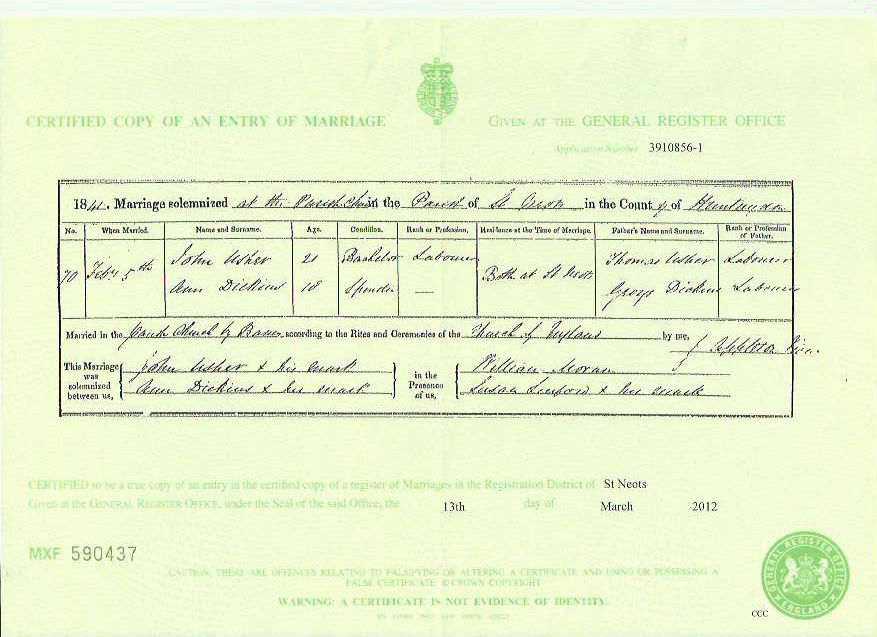 CERTIFIED COPY OF AN ENTRY OF MARRIAGE
GIVEN AT THE GENERAL REGISTER OFFICE
Application Number 3910856-1
1841. Marriage solemnized at the Parish Church in the Parish of St Neots in the County of Huntingdon
No. When Married. Name and Surname. Age. Condition. Rank or Profession. Residence at the Time of Marriage. Father's Name and Surname. Rank or Profession of Father.
70 Feby 5th John Usher 21 Bachelor Labourer Both at St Neots Thomas Usher Labourer
Ann Dickins 18 Spinster — George Dickins Labourer
Married in the Parish Church by Banns according to the Rites and Ceremonies of the Church of England by me,
This Marriage was solemnized between us, John Usher x his mark
Ann Dickins x her mark
in the Presence of us, William Moran
Susan x her mark
CERTIFIED to be a true copy of an entry in the certified copy of a register of Marriages in the Registration District of St Neots
Given at the GENERAL REGISTER OFFICE, under the Seal of the said Office, the 13th day of March 2012
MXF 590437
CAUTION: THERE ARE OFFENCES RELATING TO FALSIFYING OR ALTERING A CERTIFICATE AND USING OR POSSESSING A
FALSE CERTIFICATE. © CROWN COPYRIGHT
WARNING: A CERTIFICATE IS NOT EVIDENCE OF IDENTITY.
GENERAL REGISTER OFFICE
ENGLAND
CCC